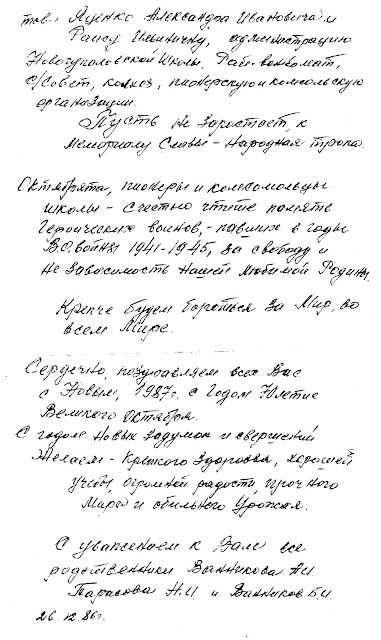 тов. Яценко Александра Ивановича и
Раису Ильиничну, администрацию
Новогупаловской школы, Рай-военкомат,
с/совет, колхоз, пионерскую и комсольскую
организации.
Пусть не заростает, к
Мемориалу Славы - Народная тропа.
Октябрята, пионеры и комсомольцы
школы - с честью чтите память
Героических воинов, - павших в годы
В.О.войны 1941-1945, за свободу и
не зависимость нашей любимой Родины.
Крепче будем бороться за Мир, во
всем Мире.
Сердечно, поздравляем всех Вас
с Новым, 1987г. с Годом 70летие
Великого Октября.
С годом новых задумок и свершений
Желаем - крепкого здоровья, хорошей
учебы, огромной радости, прочного
Мира и обильного Урожая.
С уважением к Вам все
родственники Ванникова А.И.
Тарасова Н.И и Ванников Б.И.
26.12.86г.